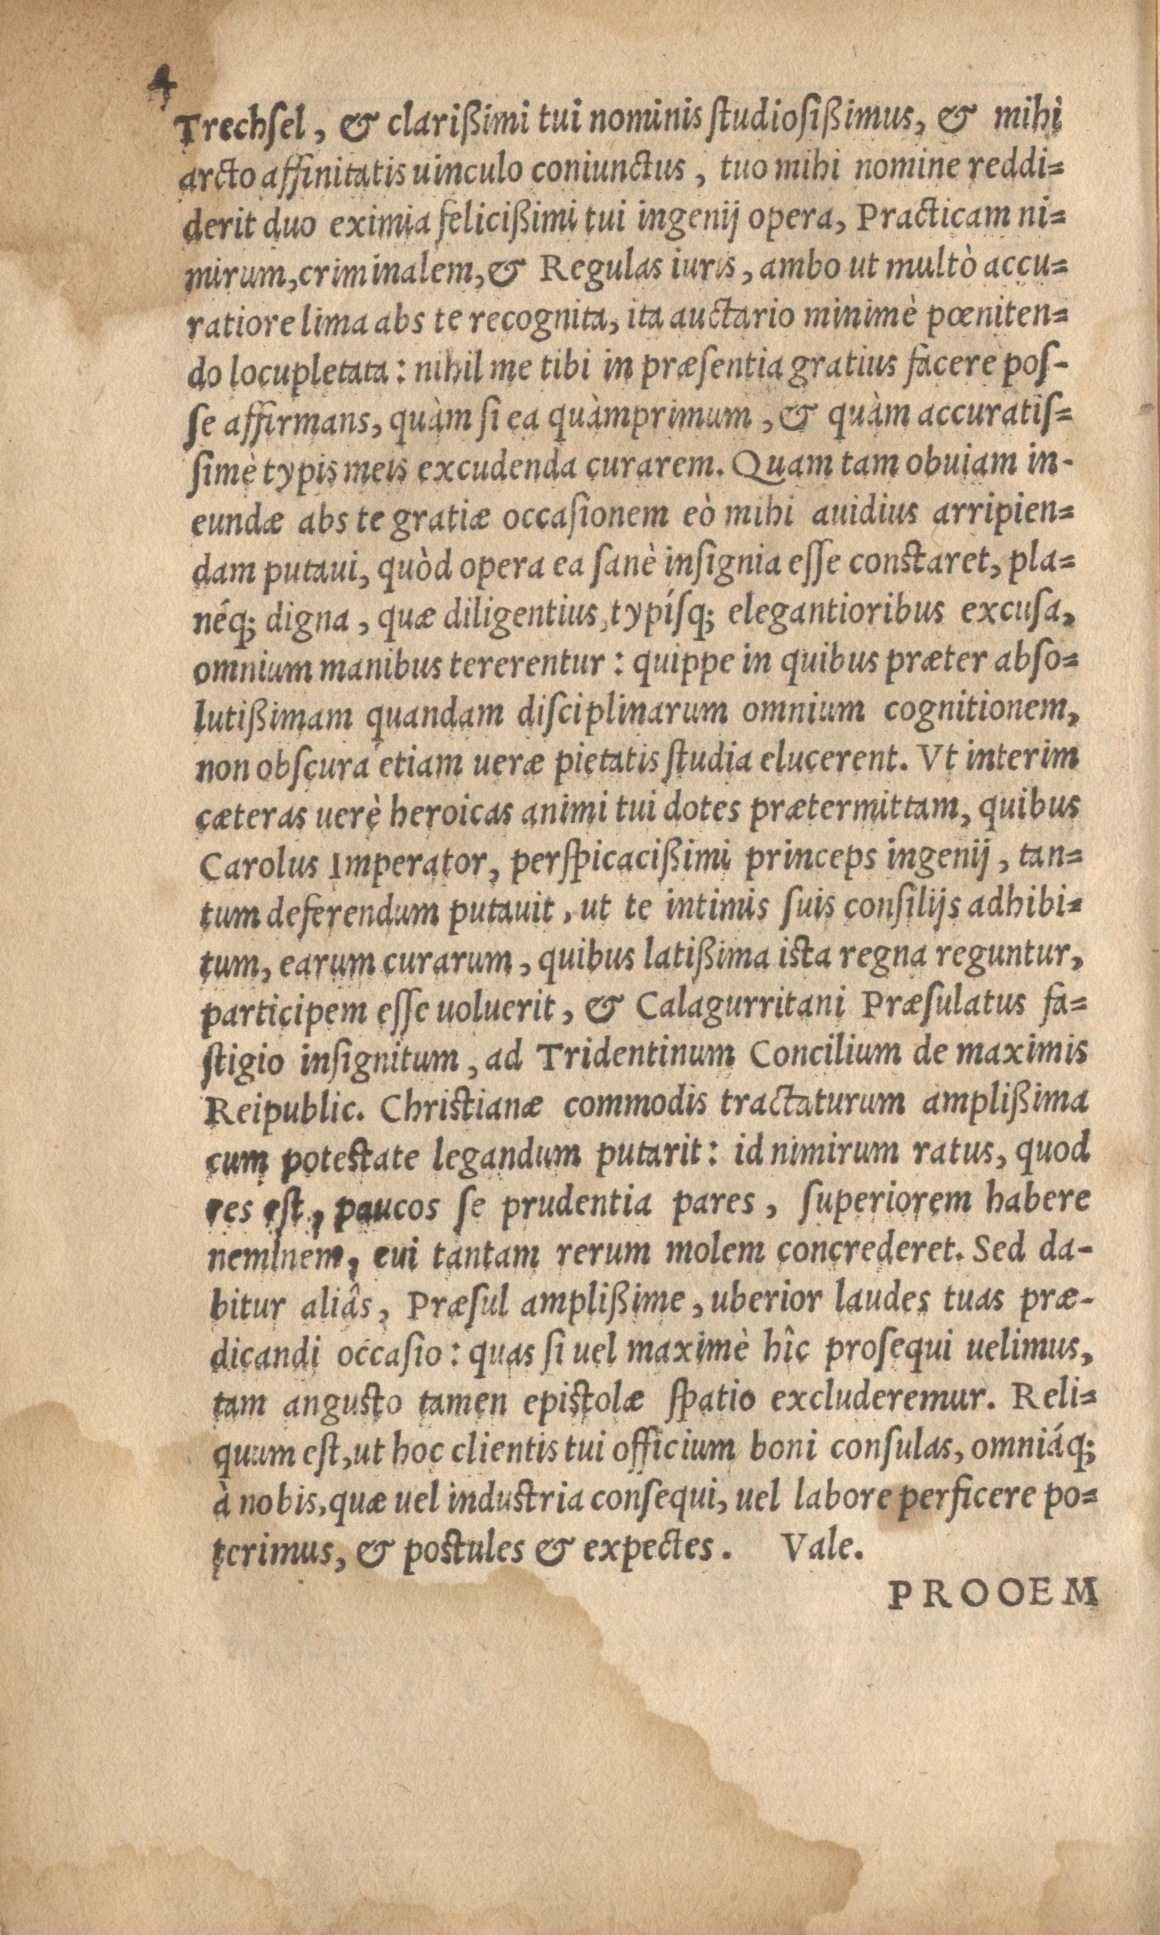 4
Trechſel, & clarißimi tui nominis ſtudioſißimus, & mihi
arcto affinitatis uinculo coniunctus, tuo mihi nomine reddi=
derit duo eximia felicißimi tui ingenij opera, Practicam ni=
mirum, criminalem, & Regulas iuris, ambo ut multò accu=
ratiore lima abs te recognita, ita auctario minimè pœniten=
do locupletata: nihil me tibi in præſentia gratius facere poſ-
ſe affirmans, quàm ſi ea quàmprimum, & quàm accuratiſ=
ſimè typis meis excudenda curarem. Quam tam obuiam in-
eundæ abs te gratiæ occaſionem eò mihi auidius arripien=
dam putaui, quòd opera ea ſanè inſignia eſſe conſtaret, pla=
néq; digna, quæ diligentius, typíſq; elegantioribus excuſa,
omnium manibus tererentur: quippe in quibus præter abſo=
lutißimam quandam diſciplinarum omnium cognitionem,
non obſcura etiam ueræ pietatis ſtudia elucerent. Vt interim
cæteras uerè heroicas animi tui dotes prætermittam, quibus
Carolus Imperator, perſpicacißimi princeps ingenij, tan=
tum deferendum putauit, ut te intimis ſuis conſilijs adhibi=
tum, earum curarum, quibus latißima iſta regna reguntur,
participem eſſe uoluerit, & Calagurritani Præſulatus fa=
ſtigio inſignitum, ad Tridentinum Concilium de maximis
Reipublic. Chriſtianæ commodis tractaturum amplißima
cum poteſtate legandum putarit: id nimirum ratus, quod
res eſt, paucos ſe prudentia pares, ſuperiorem habere
neminem, cui tantam rerum molem concrederet. Sed da-
bitur aliâs, Præſul amplißime, uberior laudes tuas præ-
dicandi occaſio: quas ſi uel maximè hîc proſequi uelimus,
tam anguſto tamen epiſtolæ ſpatio excluderemur. Reli=
quum eſt, ut hoc clientis tui officium boni conſulas, omniáq;
à nobis, quæ uel induſtria conſequi, uel labore perficere po=
terimus, & poſtules & expectes. Vale.
PROOEM